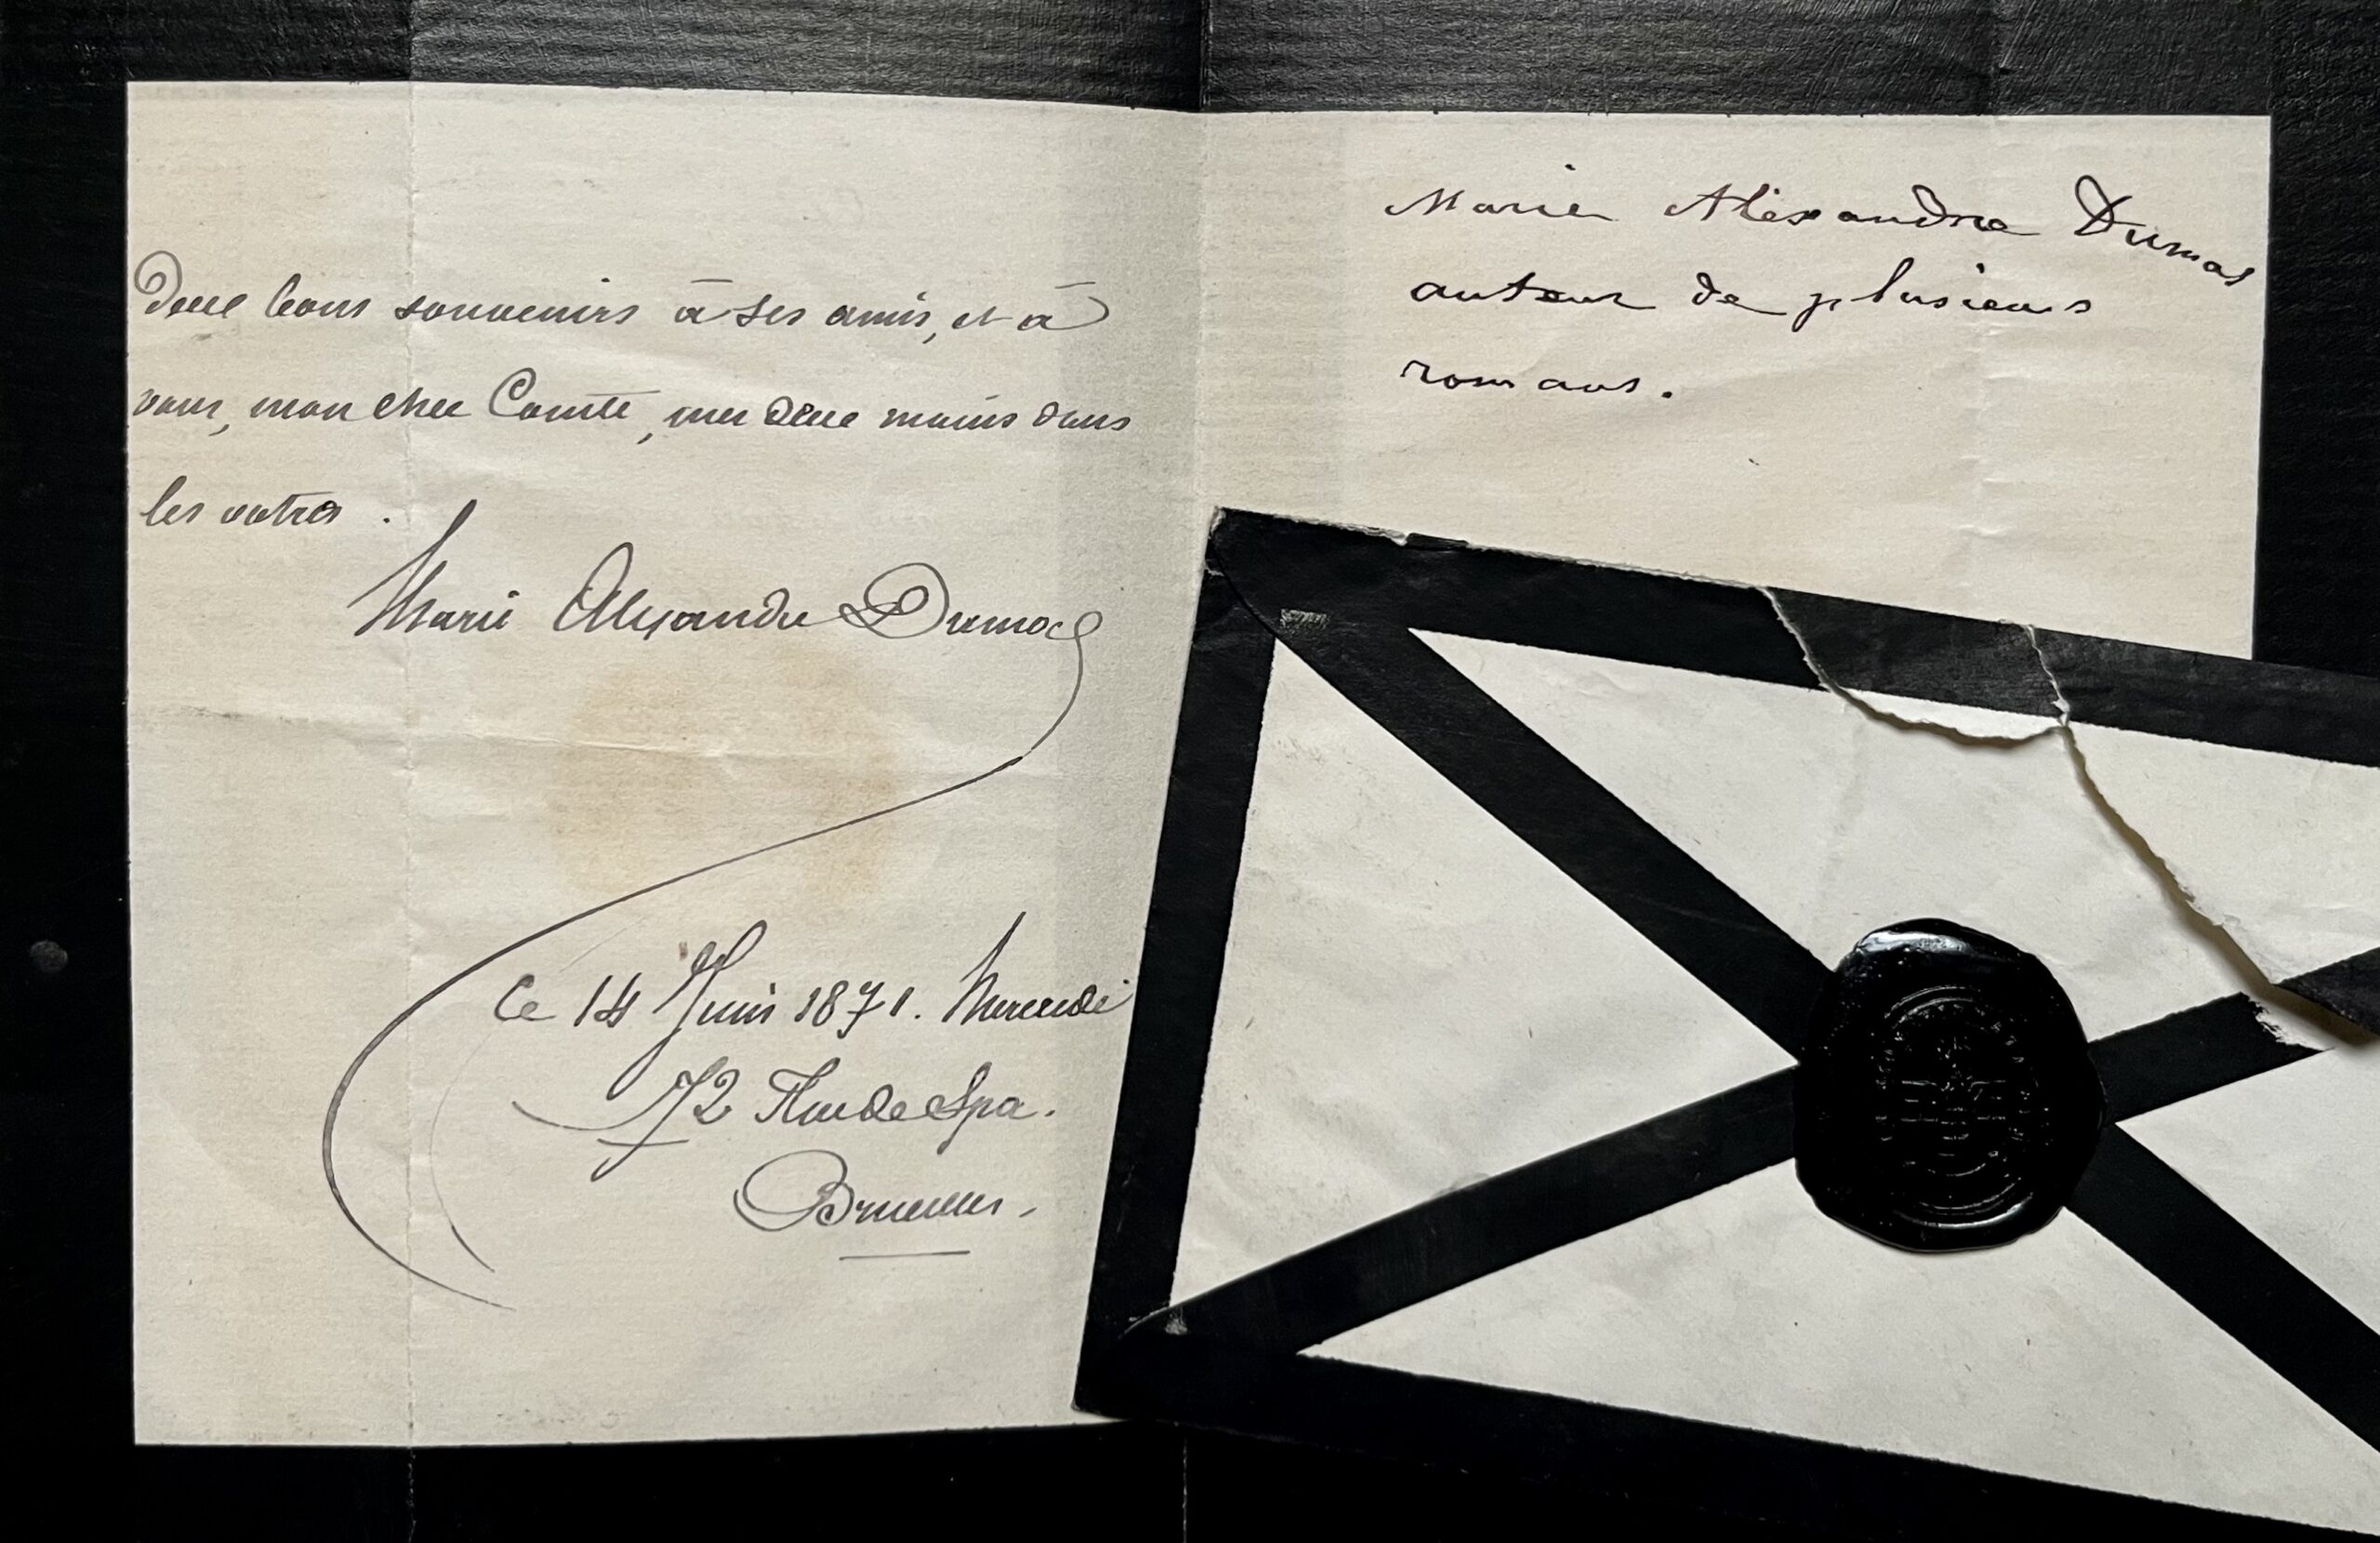 deux bons souvenirs à ses amis, et à
vous, mon cher Comte, mes deux mains dans
les votres.
Marie Alexandre Dumas
Ce 14 Juin 1871. Mercredi
72 Rue de Spa.
Bruxelles.
Marie Alexandre Dumas
auteur de plusieurs
romans.